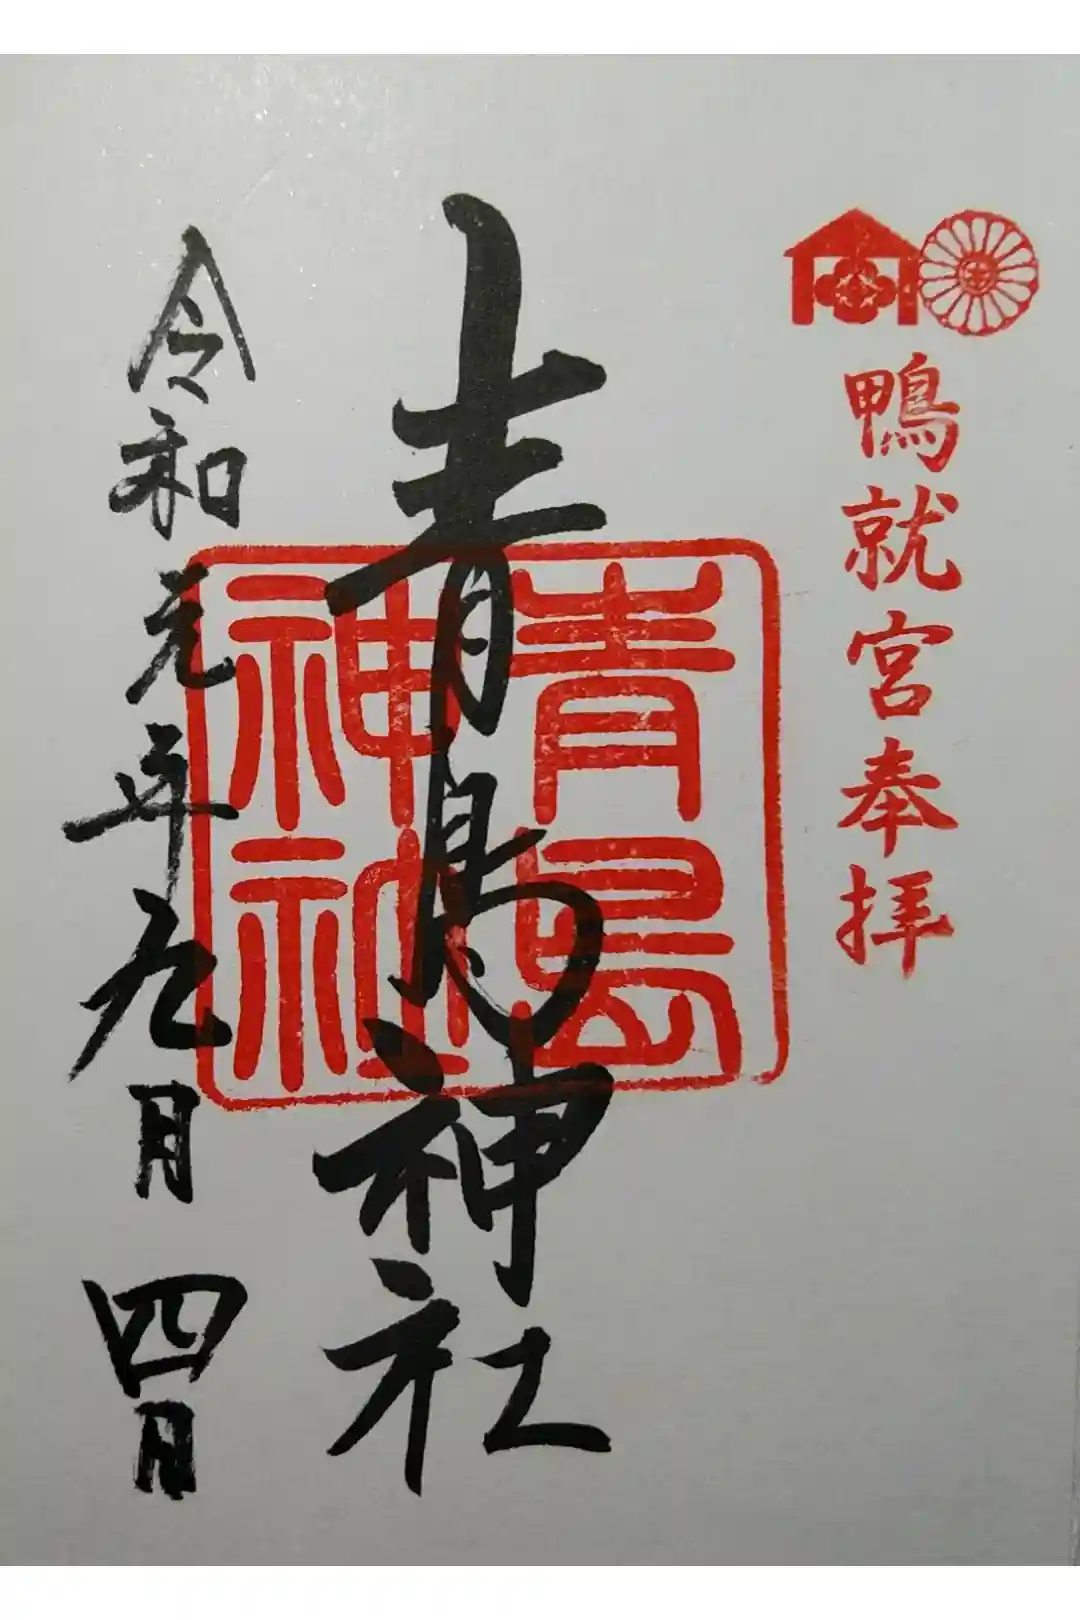 鴨就宮奉拝
青島神社
青島
神社
令和元年九月四日